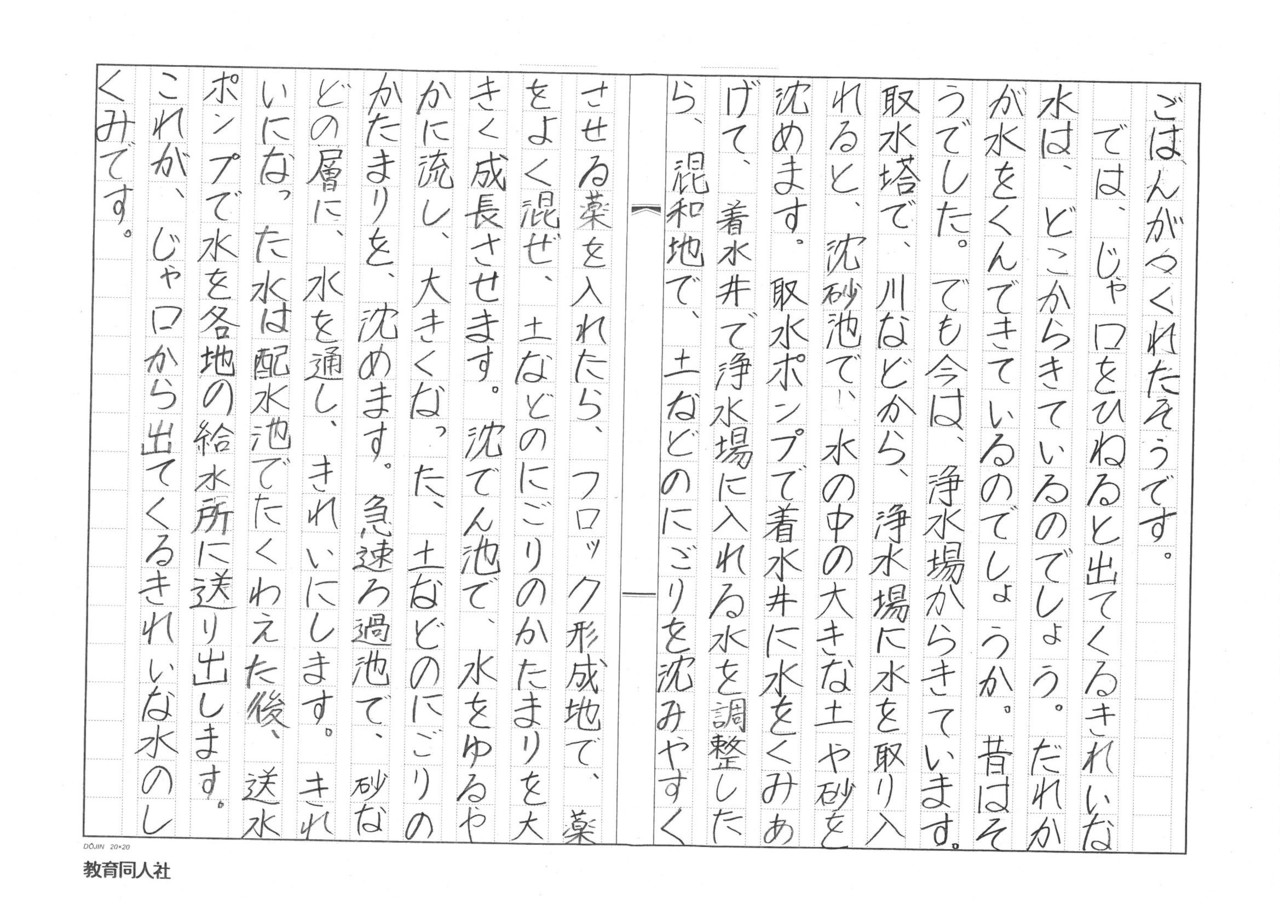 ごはんがつくれたそうです。
では、じゃ口をひねると出てくるきれいな
水は、どこからきているのでしょう。だれか
が水をくんできているのでしょうか。昔はそ
うでした。でも今は、浄水場からきています。
取水塔で、川などから、浄水場に水を取り入
れると、沈砂池で、水の中の大きな土や砂を
沈めます。取水ポンプで着水井に水をくみあ
げて、着水井で浄水場に入れる水を調整した
ら、混和地で、土などのにごりを沈みやすく
させる薬を入れたら、フロック形成地で、薬
をよく混ぜ、土などのにごりのかたまりを大
きく成長させます。沈でん池で、水をゆるや
かに流し、大きくなった、土などのにごりの
かたまりを、沈めます。急速ろ過池で、砂な
どの層に、水を通し、きれいにします。きれ
いになった水は配水池でたくわえた後、送水
ポンプで水を各地の給水所に送り出します。
これが、じゃ口から出てくるきれいな水のし
くみです。
DŌJIN 20×20
教育同人社